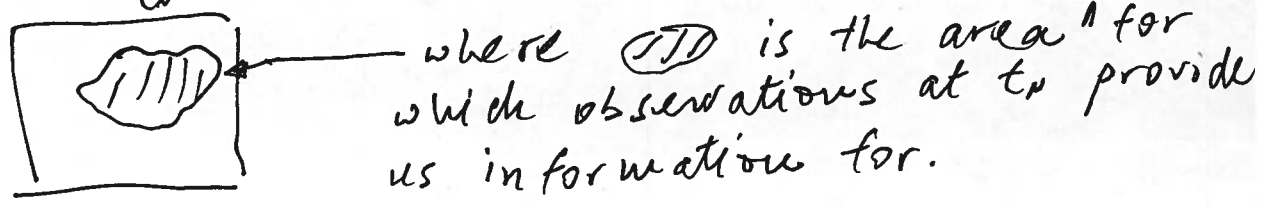 where is the area for
which observations at tN provide
us information for.